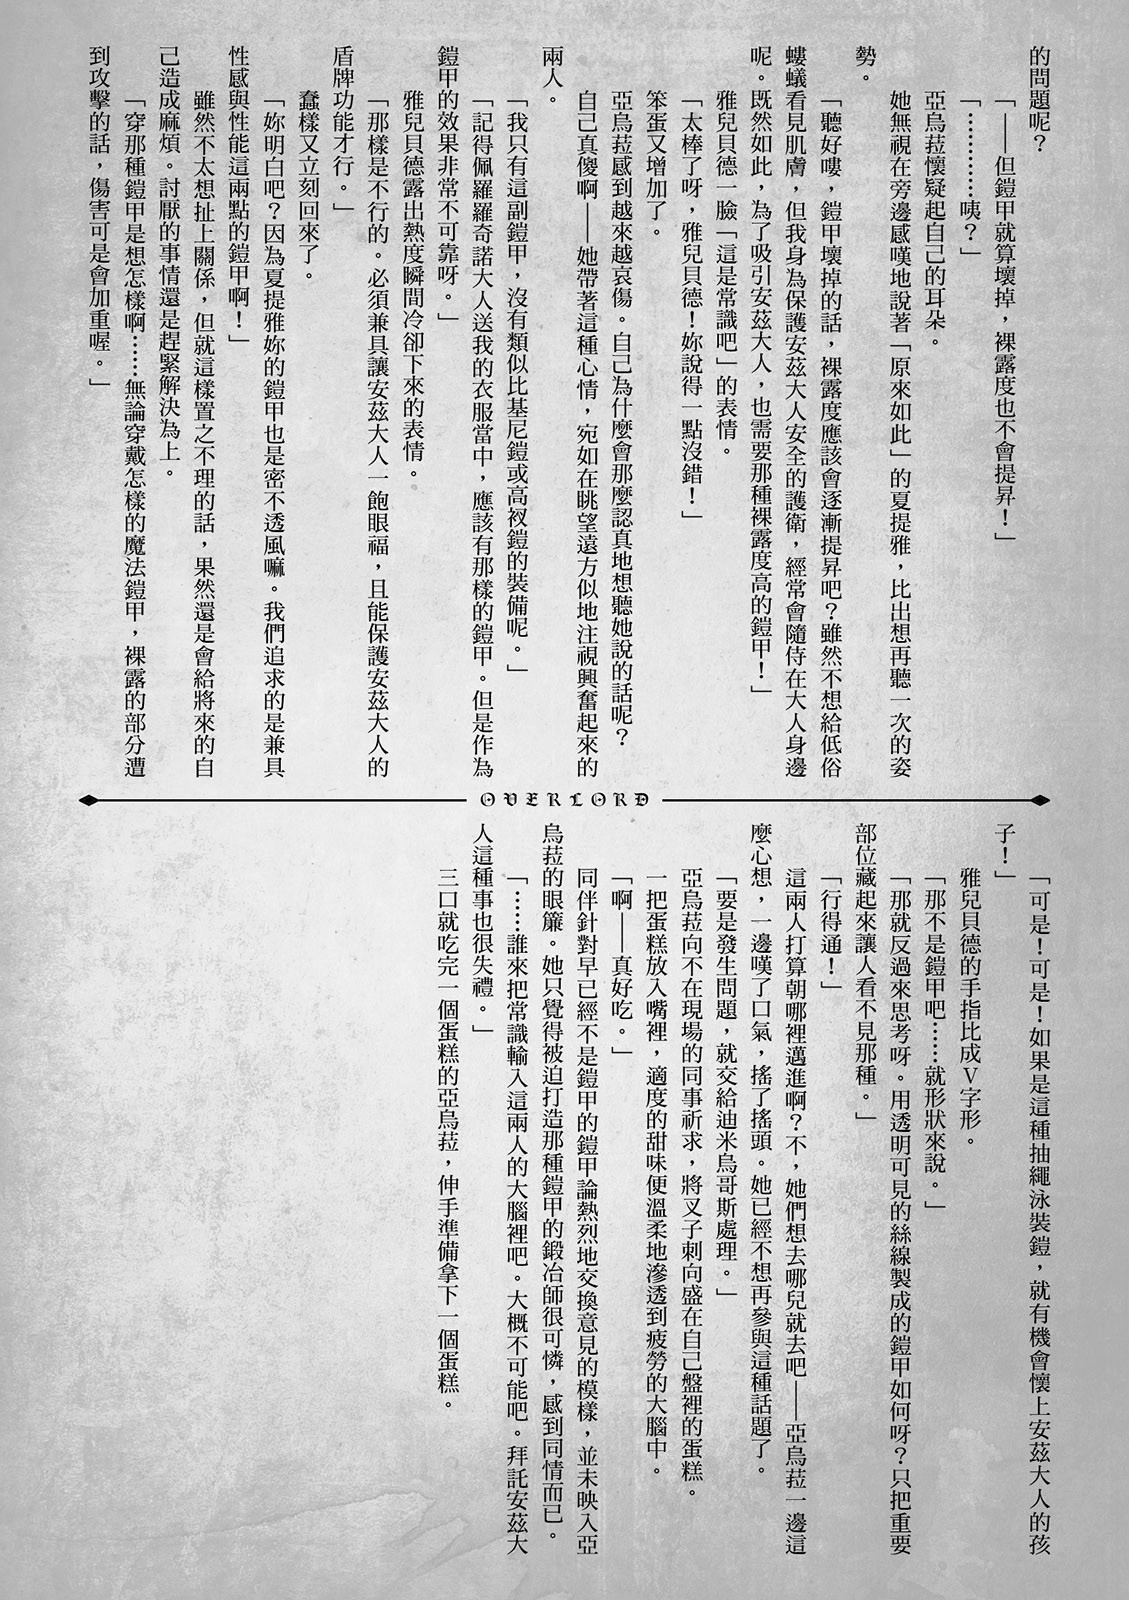 的問題呢？
「——但鎧甲就算壞掉，裸露度也不會提昇！」
「…………咦？」
亞烏菈懷疑起自己的耳朵。
她無視在旁邊感嘆地說著「原來如此」的夏提雅，比出想再聽一次的姿
勢。
「聽好嘍，鎧甲壞掉的話，裸露度應該會逐漸提昇吧？雖然不想給低俗
螻蟻看見肌膚，但我身為保護安茲大人安全的護衛，經常會隨侍在大人身邊
呢。既然如此，為了吸引安茲大人，也需要那種裸露度高的鎧甲！」
雅兒貝德一臉「這是常識吧」的表情。
「太棒了呀，雅兒貝德！妳說得一點沒錯！」
笨蛋又增加了。
亞烏菈感到越來越哀傷。自己為什麼會那麼認真地想聽她說的話呢？
自己真傻啊——她帶著這種心情，宛如在眺望遠方似地注視興奮起來的
兩人。
「我只有這副鎧甲，沒有類似比基尼鎧或高衩鎧的裝備呢。」
「記得佩羅羅奇諾大人送我的衣服當中，應該有那樣的鎧甲。但是作為
鎧甲的效果非常不可靠呀。」
雅兒貝德露出熱度瞬間冷卻下來的表情。
「那樣是不行的。必須兼具讓安茲大人一飽眼福，且能保護安茲大人的
盾牌功能才行。」
蠢樣又立刻回來了。
「妳明白吧？因為夏提雅妳的鎧甲也是密不透風嘛。我們追求的是兼具
性感與性能這兩點的鎧甲啊！」
雖然不太想扯上關係，但就這樣置之不理的話，果然還是會給將來的自
己造成麻煩。討厭的事情還是趕緊解決為上。
「穿那種鎧甲是想怎樣啊……無論穿戴怎樣的魔法鎧甲，裸露的部分遭
到攻擊的話，傷害可是會加重喔。」
OVERLORD
「可是！可是！如果是這種抽繩泳裝鎧，就有機會懷上安茲大人的孩
子！」
雅兒貝德的手指比成Ｖ字形。
「那不是鎧甲吧……就形狀來說。」
「那就反過來思考呀。用透明可見的絲線製成的鎧甲如何呀？只把重要
部位藏起來讓人看不見那種。」
「行得通！」
這兩人打算朝哪裡邁進啊？不，她們想去哪兒就去吧——亞烏菈一邊這
麼心想，一邊嘆了口氣，搖了搖頭。她已經不想再參與這種話題了。
「要是發生問題，就交給迪米烏哥斯處理。」
亞烏菈向不在現場的同事祈求，將叉子刺向盛在自己盤裡的蛋糕。
一把蛋糕放入嘴裡，適度的甜味便溫柔地滲透到疲勞的大腦中。
「啊——真好吃。」
同伴針對早已經不是鎧甲的鎧甲論熱烈地交換意見的模樣，並未映入亞
烏菈的眼簾。她只覺得被迫打造那種鎧甲的鍛冶師很可憐，感到同情而已。
「……誰來把常識輸入這兩人的大腦裡吧。大概不可能吧。拜託安茲大
人這種事也很失禮。」
三口就吃完一個蛋糕的亞烏菈，伸手準備拿下一個蛋糕。